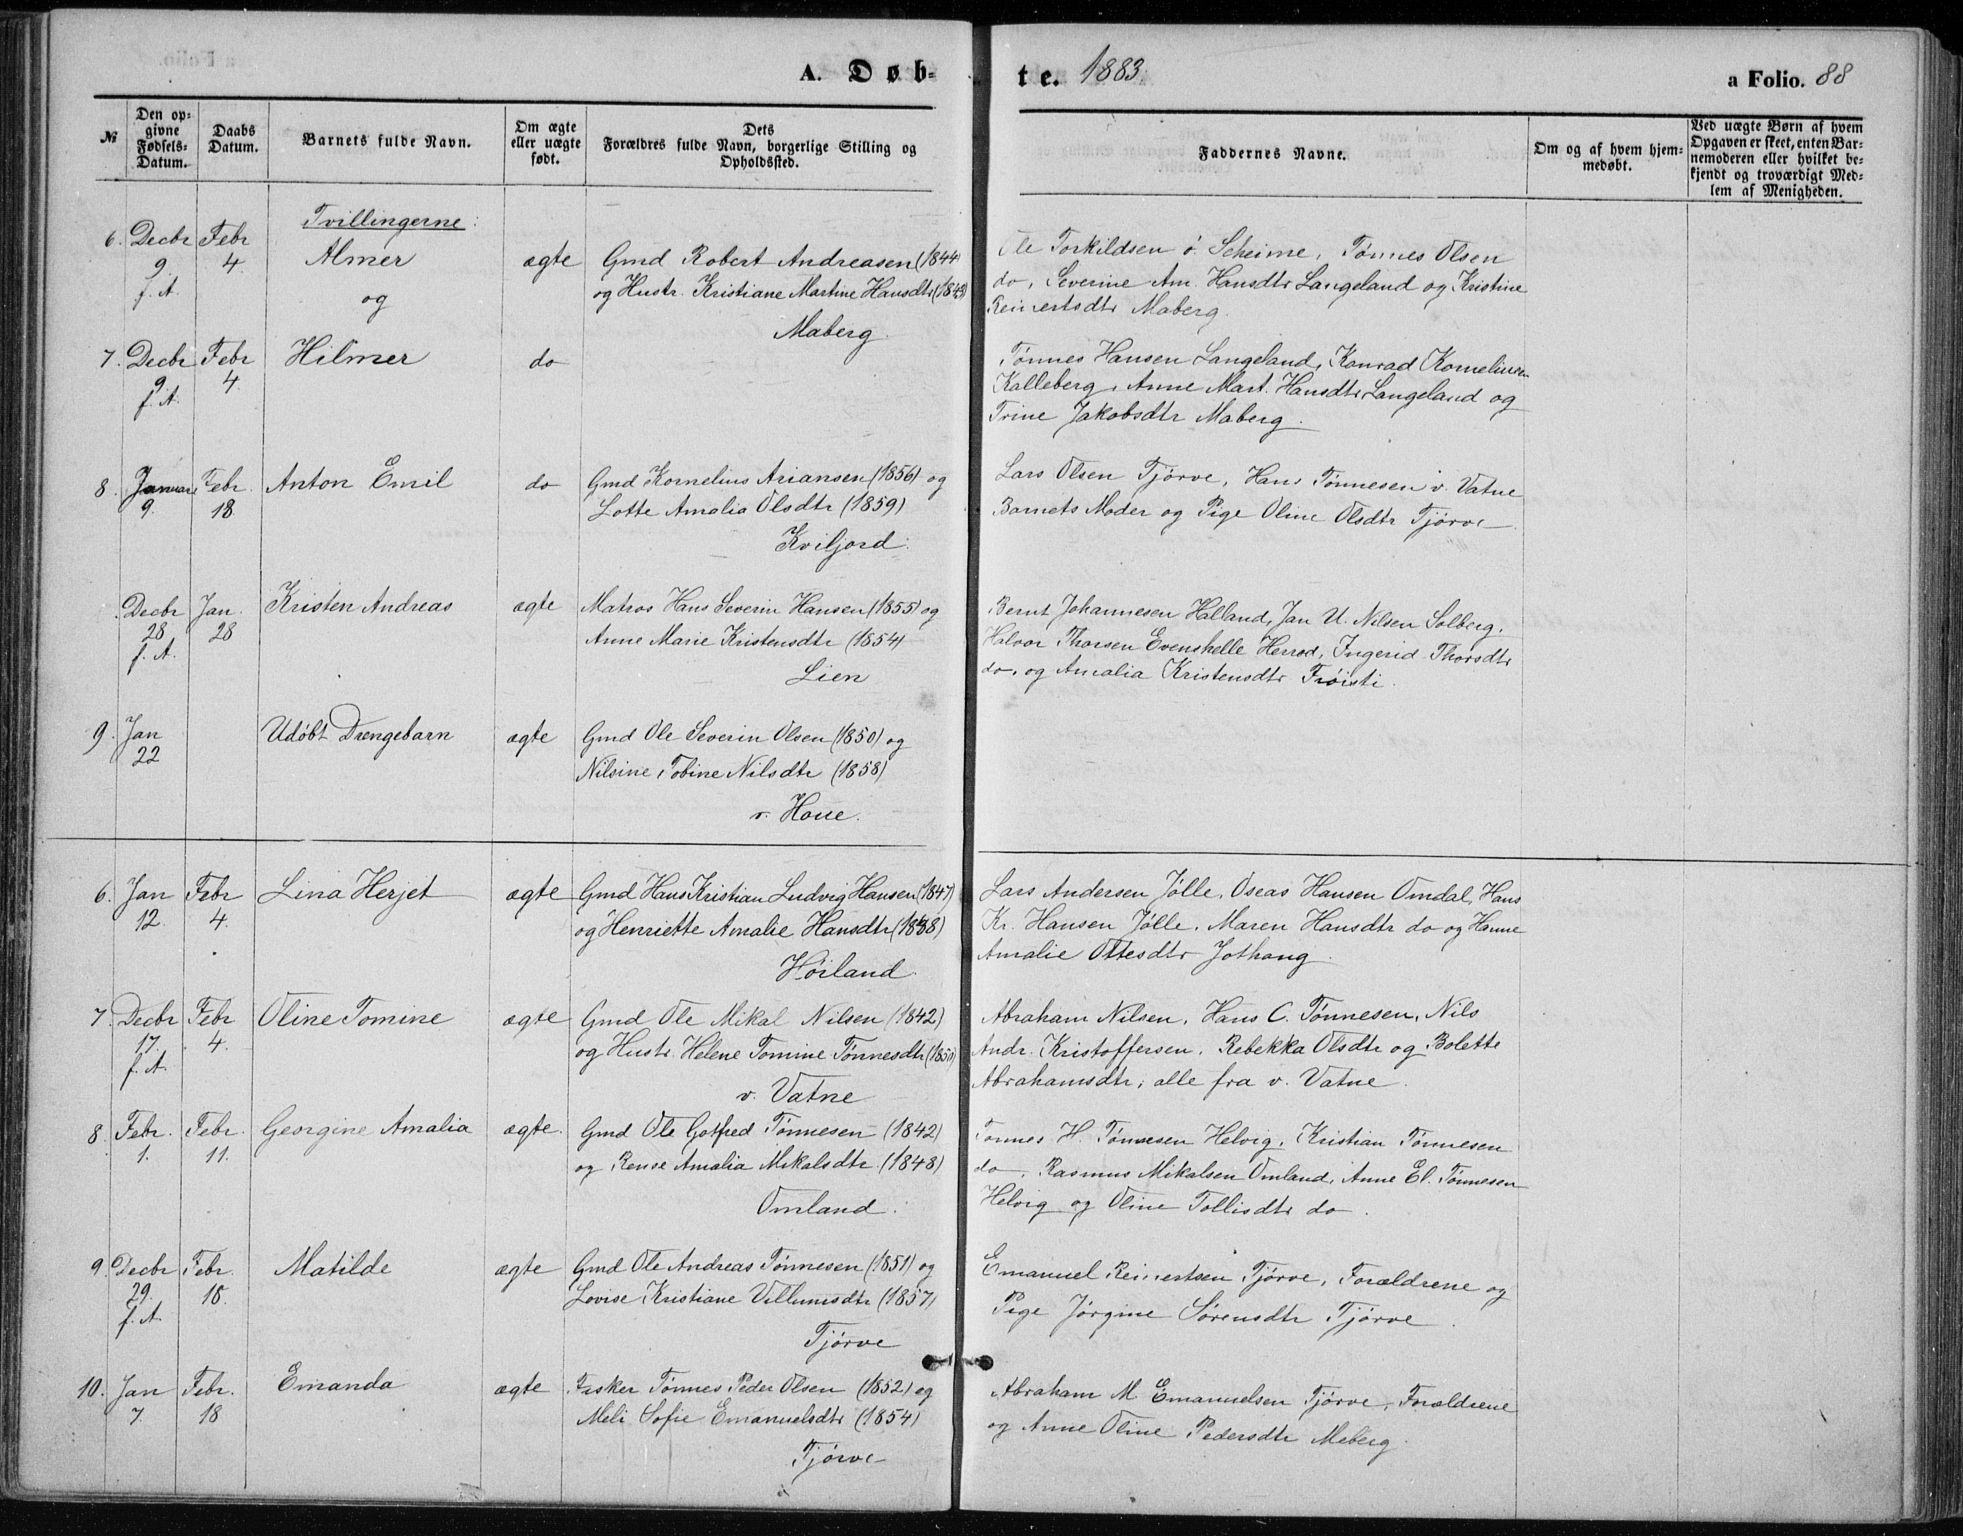 A. Døb-
te. 1883.
a Folio. 88
№
Den op-
givne
Fødsels-
Datum.
Daabs
Datum.
Barnets fulde Navn.
Om ægte
eller uægte
født.
Dets
Forældres fulde Navn, borgerlige Stilling og
Opholdssted.
Faddernes Navne.
Om og af hvem hjem-
medøbt.
Ved uægte Børn af hvem
Opgaven er skeet, enten Bar-
nemoderen eller hvilket be-
kjendt og troværdigt Med-
lem af Menigheden.
Tvillingerne:
6. Decbr 9. f.A. Febr 4. Almer ægte Gmd Robert Andreasen (1844)
og og Hustr. Kristiane Martine Hansdtr
Maberg.
Torkildsen ø. Scheime, Tønnes Olsen
do, Severine Am. Hansdtr Langeland og Kristine
Reinertsdtr Maberg.
7. Decbr 9. f.A. Febr 4. Hilmer do
Tønnes Hansen Langeland, Konrad Korneliusen
Kalleberg, Anne Mart. Hansdtr Langeland og
Trine Jakobsdtr Maberg.
8. Januar 9. Febr. 18. Anton Emil do Gmd Kornelius Ariansen (1856) og
Lotte Amalia Olsdtr (1859)
Kviljord.
Lars Olsen Tjørve, Hans Tønnesen v. Vatne
Barnets Moder og Pige Oline Olsdtr Tjørve
Decbr 28 f.A. Jan. 28 Kristen Andreas ægte Matros Hans Severin Hansen (1855) og
Anne Marie Kristensdtr (1854)
Lien
Bernt Johannesen Halland, Jan U. Nilsen Solberg,
Halvor Thorsen Evenshelle Herrod, Ingerid Thorsdtr
do. og Amalia Kristensdtr Frøisti.
9. Jan 22 Udøbt Drengebarn ægte Gmd Ole Severin Olsen (1850) og
Nilsine Tobine Nilsdtr (1858)
v. Haue.
6. Jan 12. Febr 4. Lina Herjet ægte Gmd Hans Kristian Ludvig Hansen (1847)
og Henriette Amalie Hansdtr
Høiland.
Lars Andersen Jølle, Oseas Hansen Omdal, Hans
Kr. Hansen Jølle, Maren Hansdtr do og Hanne
Amalie Ottesdtr Jothang.
7. Decbr 17. f.A. Febr 4. Oline Tomine ægte Gmd Ole Mikal Nilsen (1842)
og Hustr. Helene Tomine Tønnesdtr
v. Vatne
Abraham Nilsen, Hans C. Tønnesen, Nils
Andr. Kristoffersen, Rebekka Olsdtr og Bolette
Abrahamsdtr, alle fra v. Vatne.
8. Febr. 1. Febr. 11. Georgine Amalia ægte. Gmd Ole Gotfred Tønnesen (1842)
og Rense Amalia Mikalsdtr (1848)
Omland.
Tønnes H. Tønnesen Helvig, Kristian Tønnesen
do, Rasmus Mikalsen Omland, Anne El. Tønnesen
Helvig og Oline Tollisdtr do.
9. Decbr 29. f.A. Febr. 18. Matilde ægte Gmd Ole Andreas Tønnesen (1851) og
Lovise Kristiane Villumsdtr (1857)
Tjørve
Emanuel Reinertsen Tjørve, Forældrene og
Pige Jørgine Sørensdtr Tjørve.
10. Jan 7. Febr. 18 Emanda ægte Fisker Tønnes Peder Olsen (1852) og
Meli Sofie Emanuelsdtr (1854)
Tjørve
Abraham M. Emanuelsen Tjørve, Forældrene
og Anne Oline Pedersdtr Meberg.